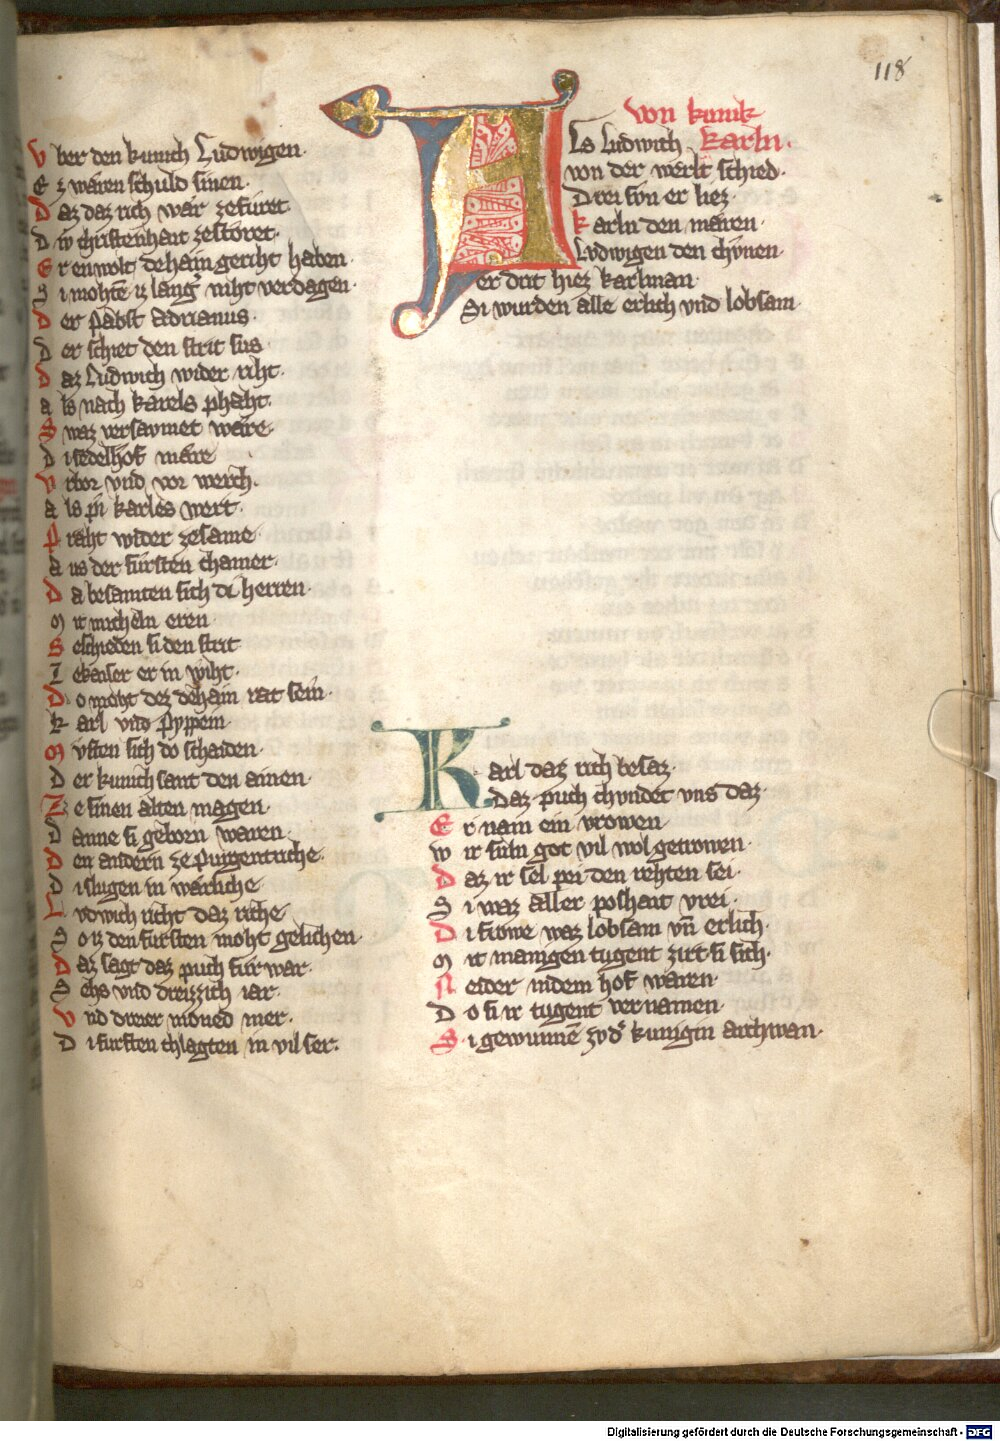 118
V ber den kunich Ludwigen.
E z wæren schuld sinen.
D az daz rich wær zefuret.
D iv christenhait zestoret.
E r en wolt dehain gericht haben.
S i mohtē iz lang niht verdagen.
D er pabst Adrianus.
D er schiet den strit sus
D az Ludwich wider riht.
a ls nach karels phaht.
S waz versavmet wære.
D i sedelhof mære
V rbor vnd vor werch.
a ls pi karles wert.
P raht wider zesame.
a us der fursten chamer.
D a besamten sich di herren.
M it micheln eren
B eschieden si den strit
Z e kaiser er in wiht.
D o moht dez dehain rat sein.
k arl vnd Pyppein
M vsten sich do schaiden.
D er kunich sant den ainen.
Z e sinen alten magen.
D anne si geborn waren.
D en andern ze purgentriche
D i slugen in wærliche
L vdwich richt daz riche
S o iz den fursten moht gelichen.
D az sagt daz puch fur war.
S ehs vnd dreizzich iar.
V nd dreier moned mer.
D i fursten chlagten in vil ser.
Von kunik
karln.
ALs Ludwich
von der werlt schied.
Drei svn er liez
karln den mæren.
Lvdwigen den chvnen.
er drit hiez karlman.
Si wurden alle erlich vnd lobsam.
Karl daz rich besaz
Daz puch chvndet vns daz.
E r nam ein vrowen
w ir suln got vil wol getrowen.
D az ir sel pei den rehten sei.
S i waz aller poshait vrei.
D i frowe waz lobsam vn̄ erlich.
M it manigen tugent zirt si sich.
N eider in dem hof waren.
D o si ir tugent vernamen.
S i gewunnē zvdʳ kunigin archwan.
Digitalisierung gefördert durch die Deutsche Forschungsgemeinschaft - DFG